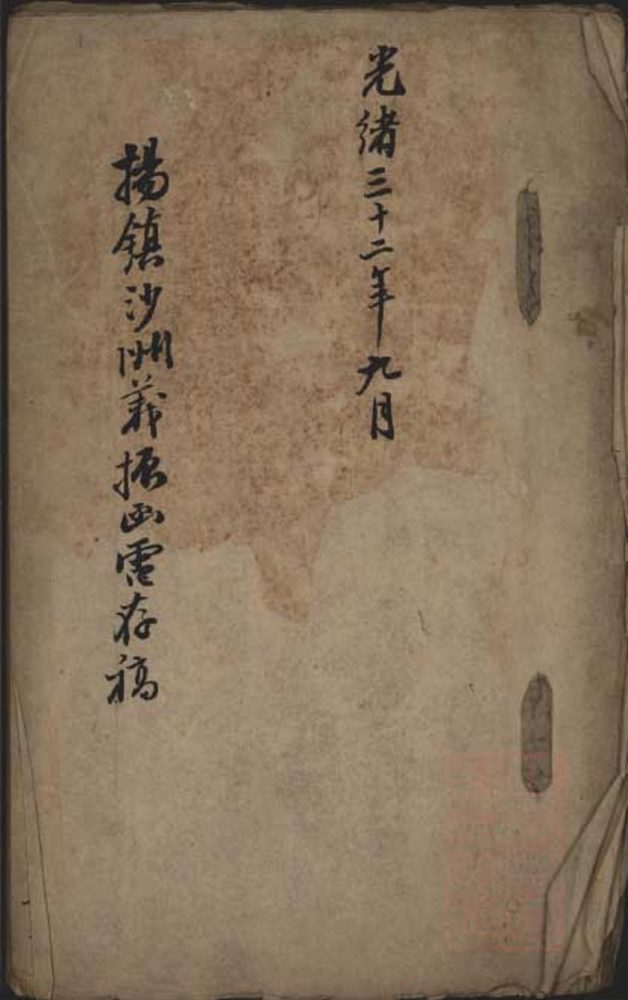 光緒三十二年九月
揚鎮沙洲義振函電存稿